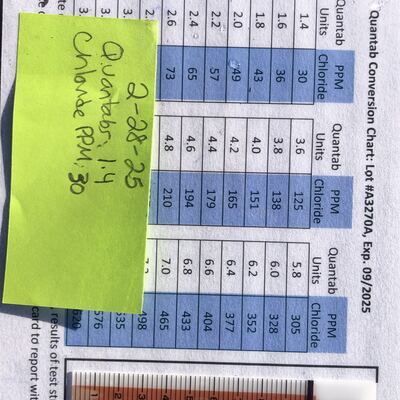 Quantab Conversion Chart: Lot #A3270A, Exp. 09/2025
Quantab Units PPM Chloride Quantab Units PPM Chloride Quantab Units PPM Chloride
1.4 30 3.6 125 5.8 305
1.6 36 3.8 138 6.0 328
1.8 43 4.0 151 6.2 352
2.0 49 4.2 165 6.4 377
2.2 57 4.4 179 6.6 404
2.4 65 4.6 194 6.8 433
2.6 73 4.8 210 7.0 465
2-28-25
Quantabs: 1.4
Chloride PPM: 30
results of test st
card to report wit